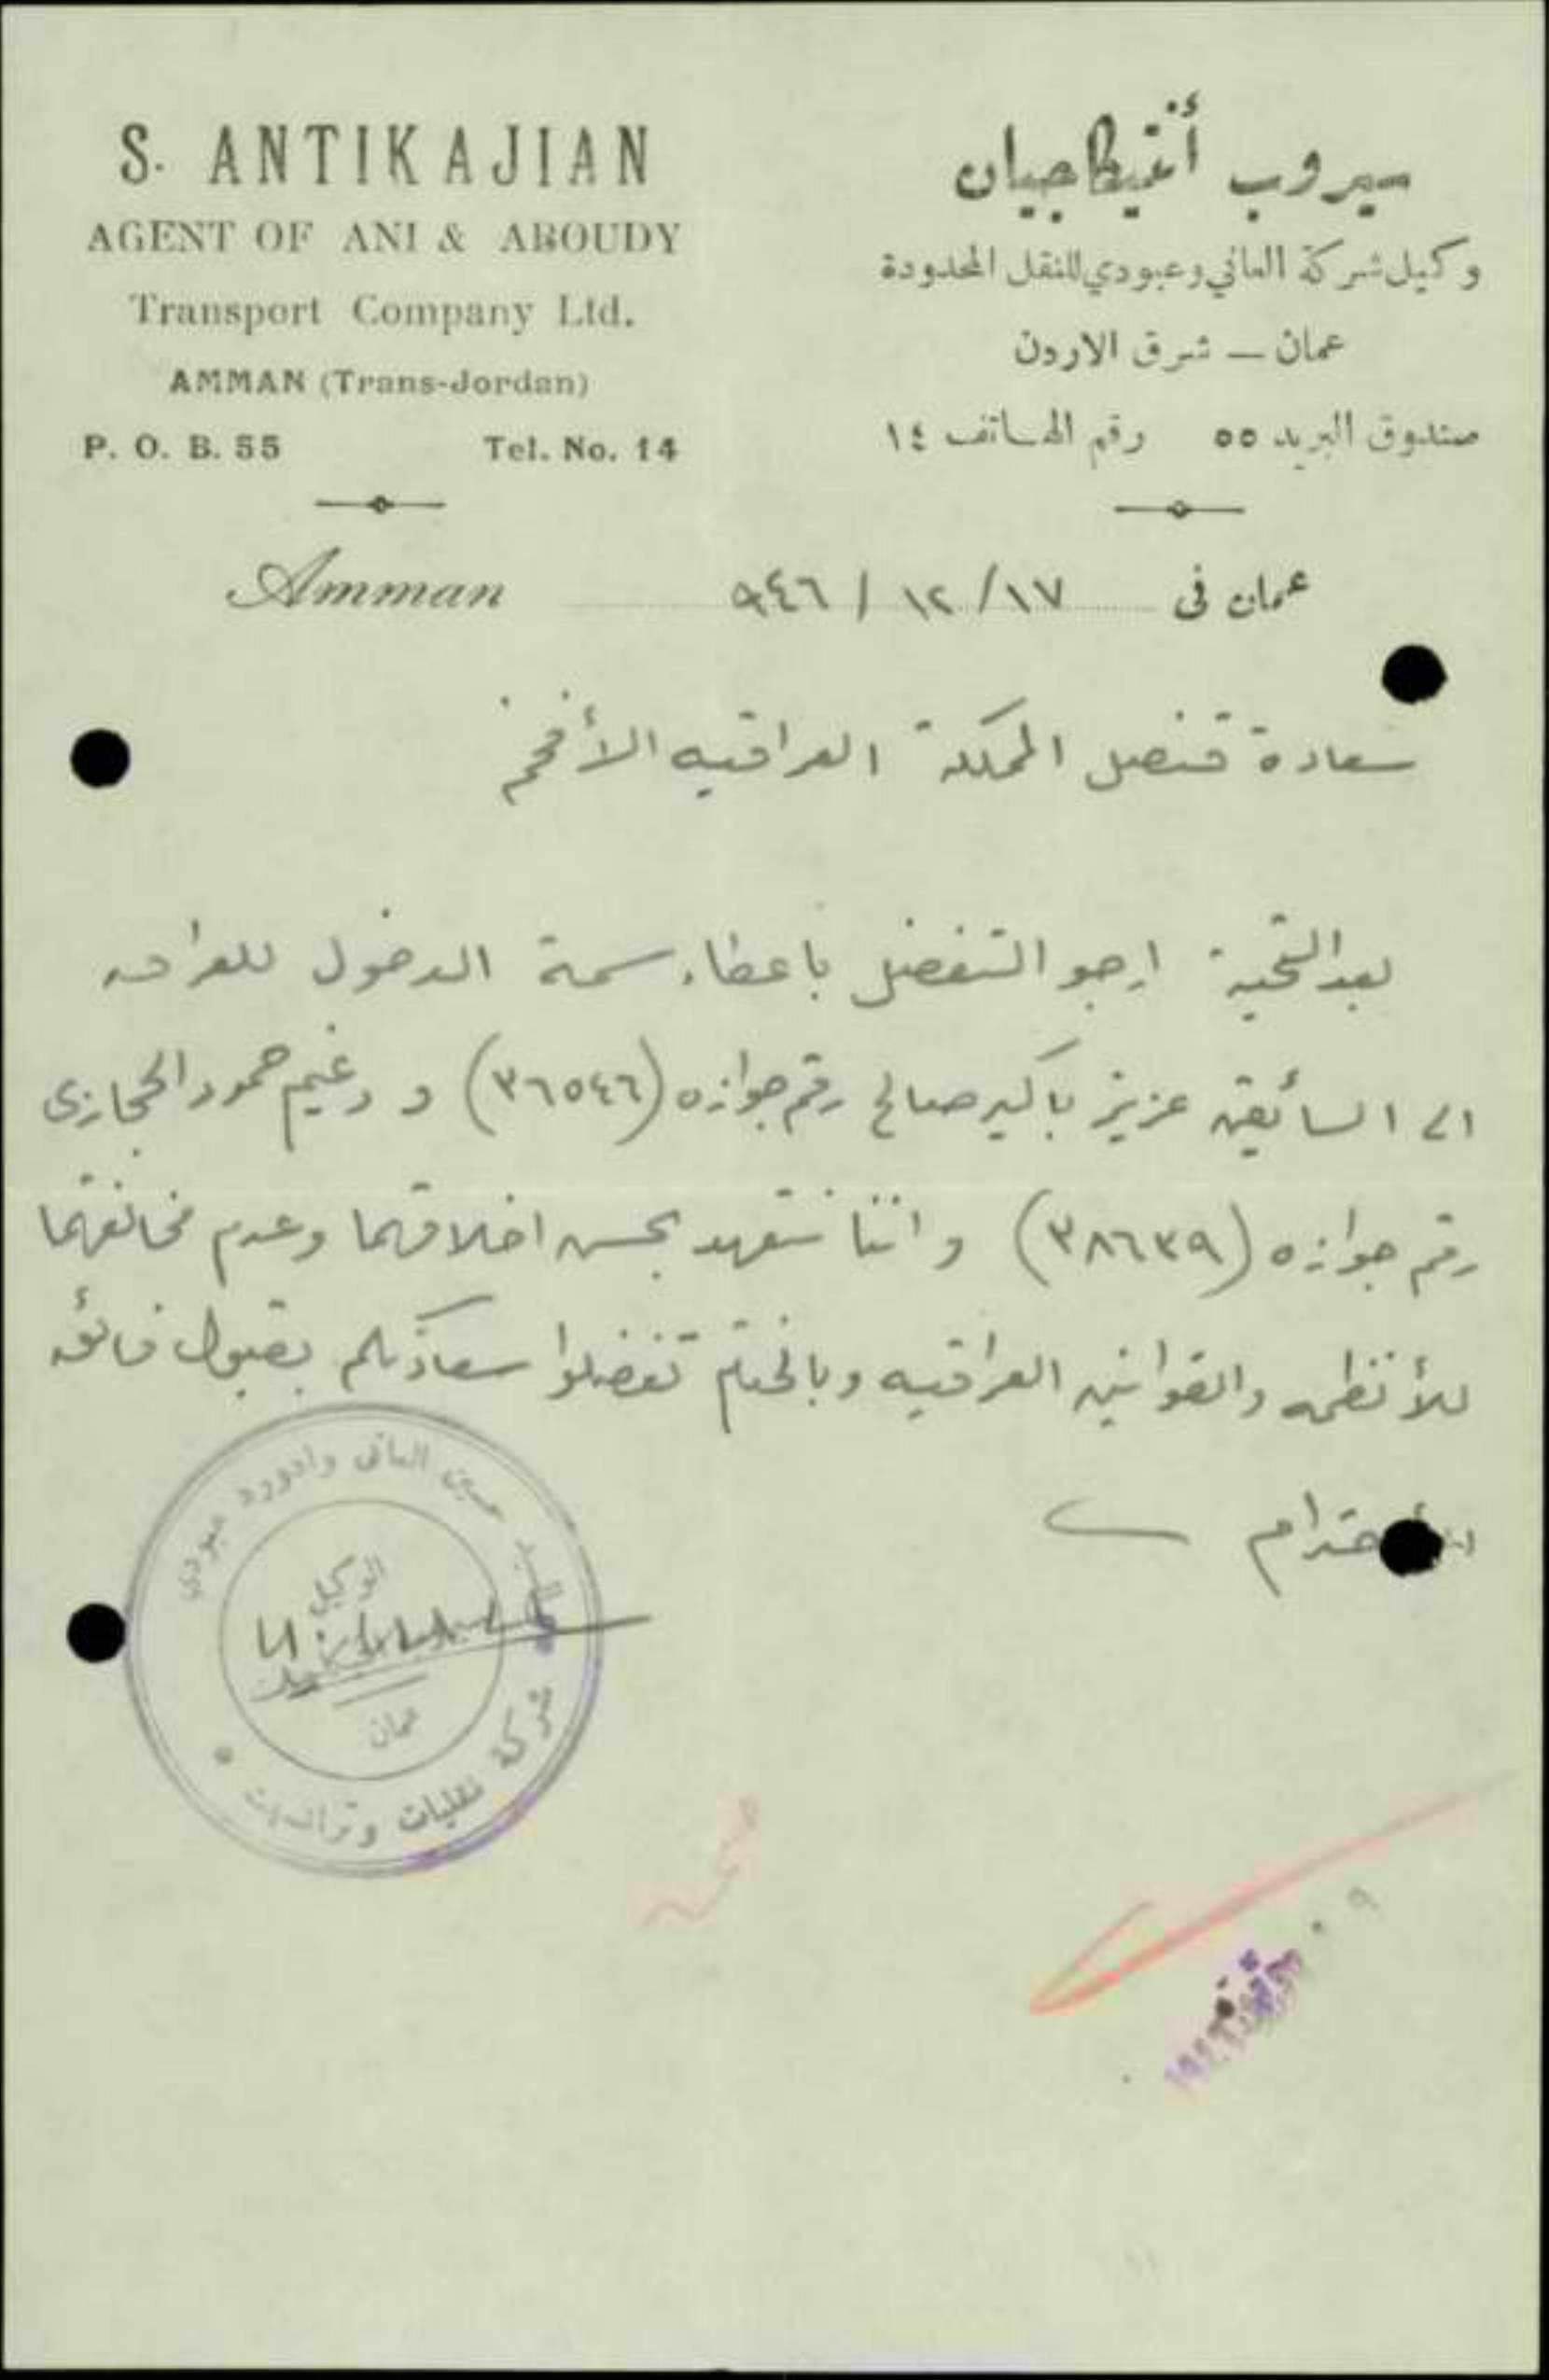 S. ANTIKAJIAN
AGENT OF ANI & ABOUDY
Transport Company Ltd.
AMMAN (Trans-Jordan)
P. O. B. 55 Tel. No. 14
سيروب أنتيكاجيان
وكيل شركة العاني وعبودي للنقل المحدودة
عمان — شرق الاردن
صندوق البريد ٥٥ رقم الهاتف ١٤
Amman
عمان في ١٧/ ١٢ / ٩٤٦
سعادة قنصل المملكة العراقيه الأفخم
بعد التحية ارجو التفضل باعطاء سمة الدخول للعراق
الى السائقين عزيز باكير صالح رقم جوازه (٣٦٥٤٦) و دغيم حمود الحجازي
رقم جوازه (٣٨٦٣٩) واننا نتعهد بحسن اخلاقهما وعدم مخالفتهما
للأنظمه والقوانين العراقيه وبالختام تفضلوا سعادتكم بقبول فائق
الأحترام
السيد حسين العاني وادورد عبودي
الوكيل
عمان
شركة نقليات وترانسيت